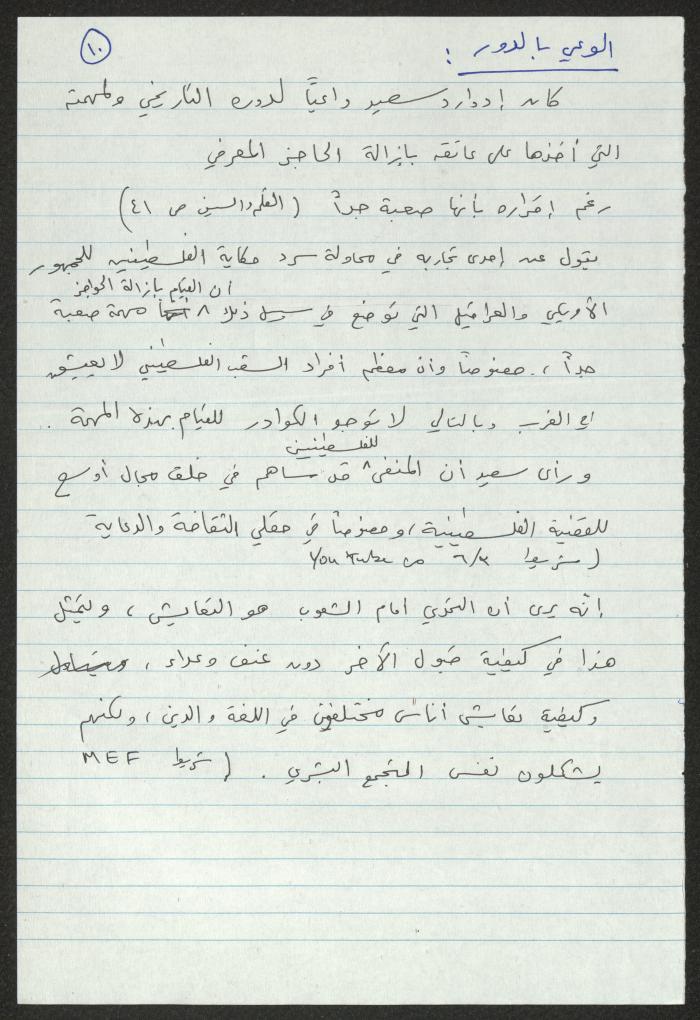 ١٠
الوعي بالدور :
كان إدوارد سعيد واعيًا لدوره التاريخي ولمهمته
التي أخذها على عاتقه بإزالة الحاجز المعرفي
رغم إقراره بأنها صعبة جداً ( القلم والسيف ص ٤١)
يقول عن إحدى تجاربه في محاولة سرد حكاية الفلسطينيين للجمهور
أن القيام بإزالة الحواجز
الأمريكي والعراقيل التي توضع في سبيل ذلك ٨ مهمة صعبة
جداً ، خصوصاً وأن معظم أفراد الشعب الفلسطيني لا يعيشون
في الغرب وبالتالي لا توجد الكوادر للقيام بهذه المهمة .
للفلسطينيين
ورأى سعيد أن المنفى ٨ قد ساهم في خلق مجال أوسع
للقضية الفلسطينية ، وخصوصاً في حقلي الثقافة والدعاية
( ٦/٣ You tube
إنّه يرى أن التحدي امام الشعوب هو التعايش ، ويتمثل
هذا في كيفية قبول الآخر دون عنف وعداء ،
وكيفية تعايش أناس مختلفين في اللغة والدين ، ولكنهم
يشكلون نفس المجتمع البشري . ( MEF